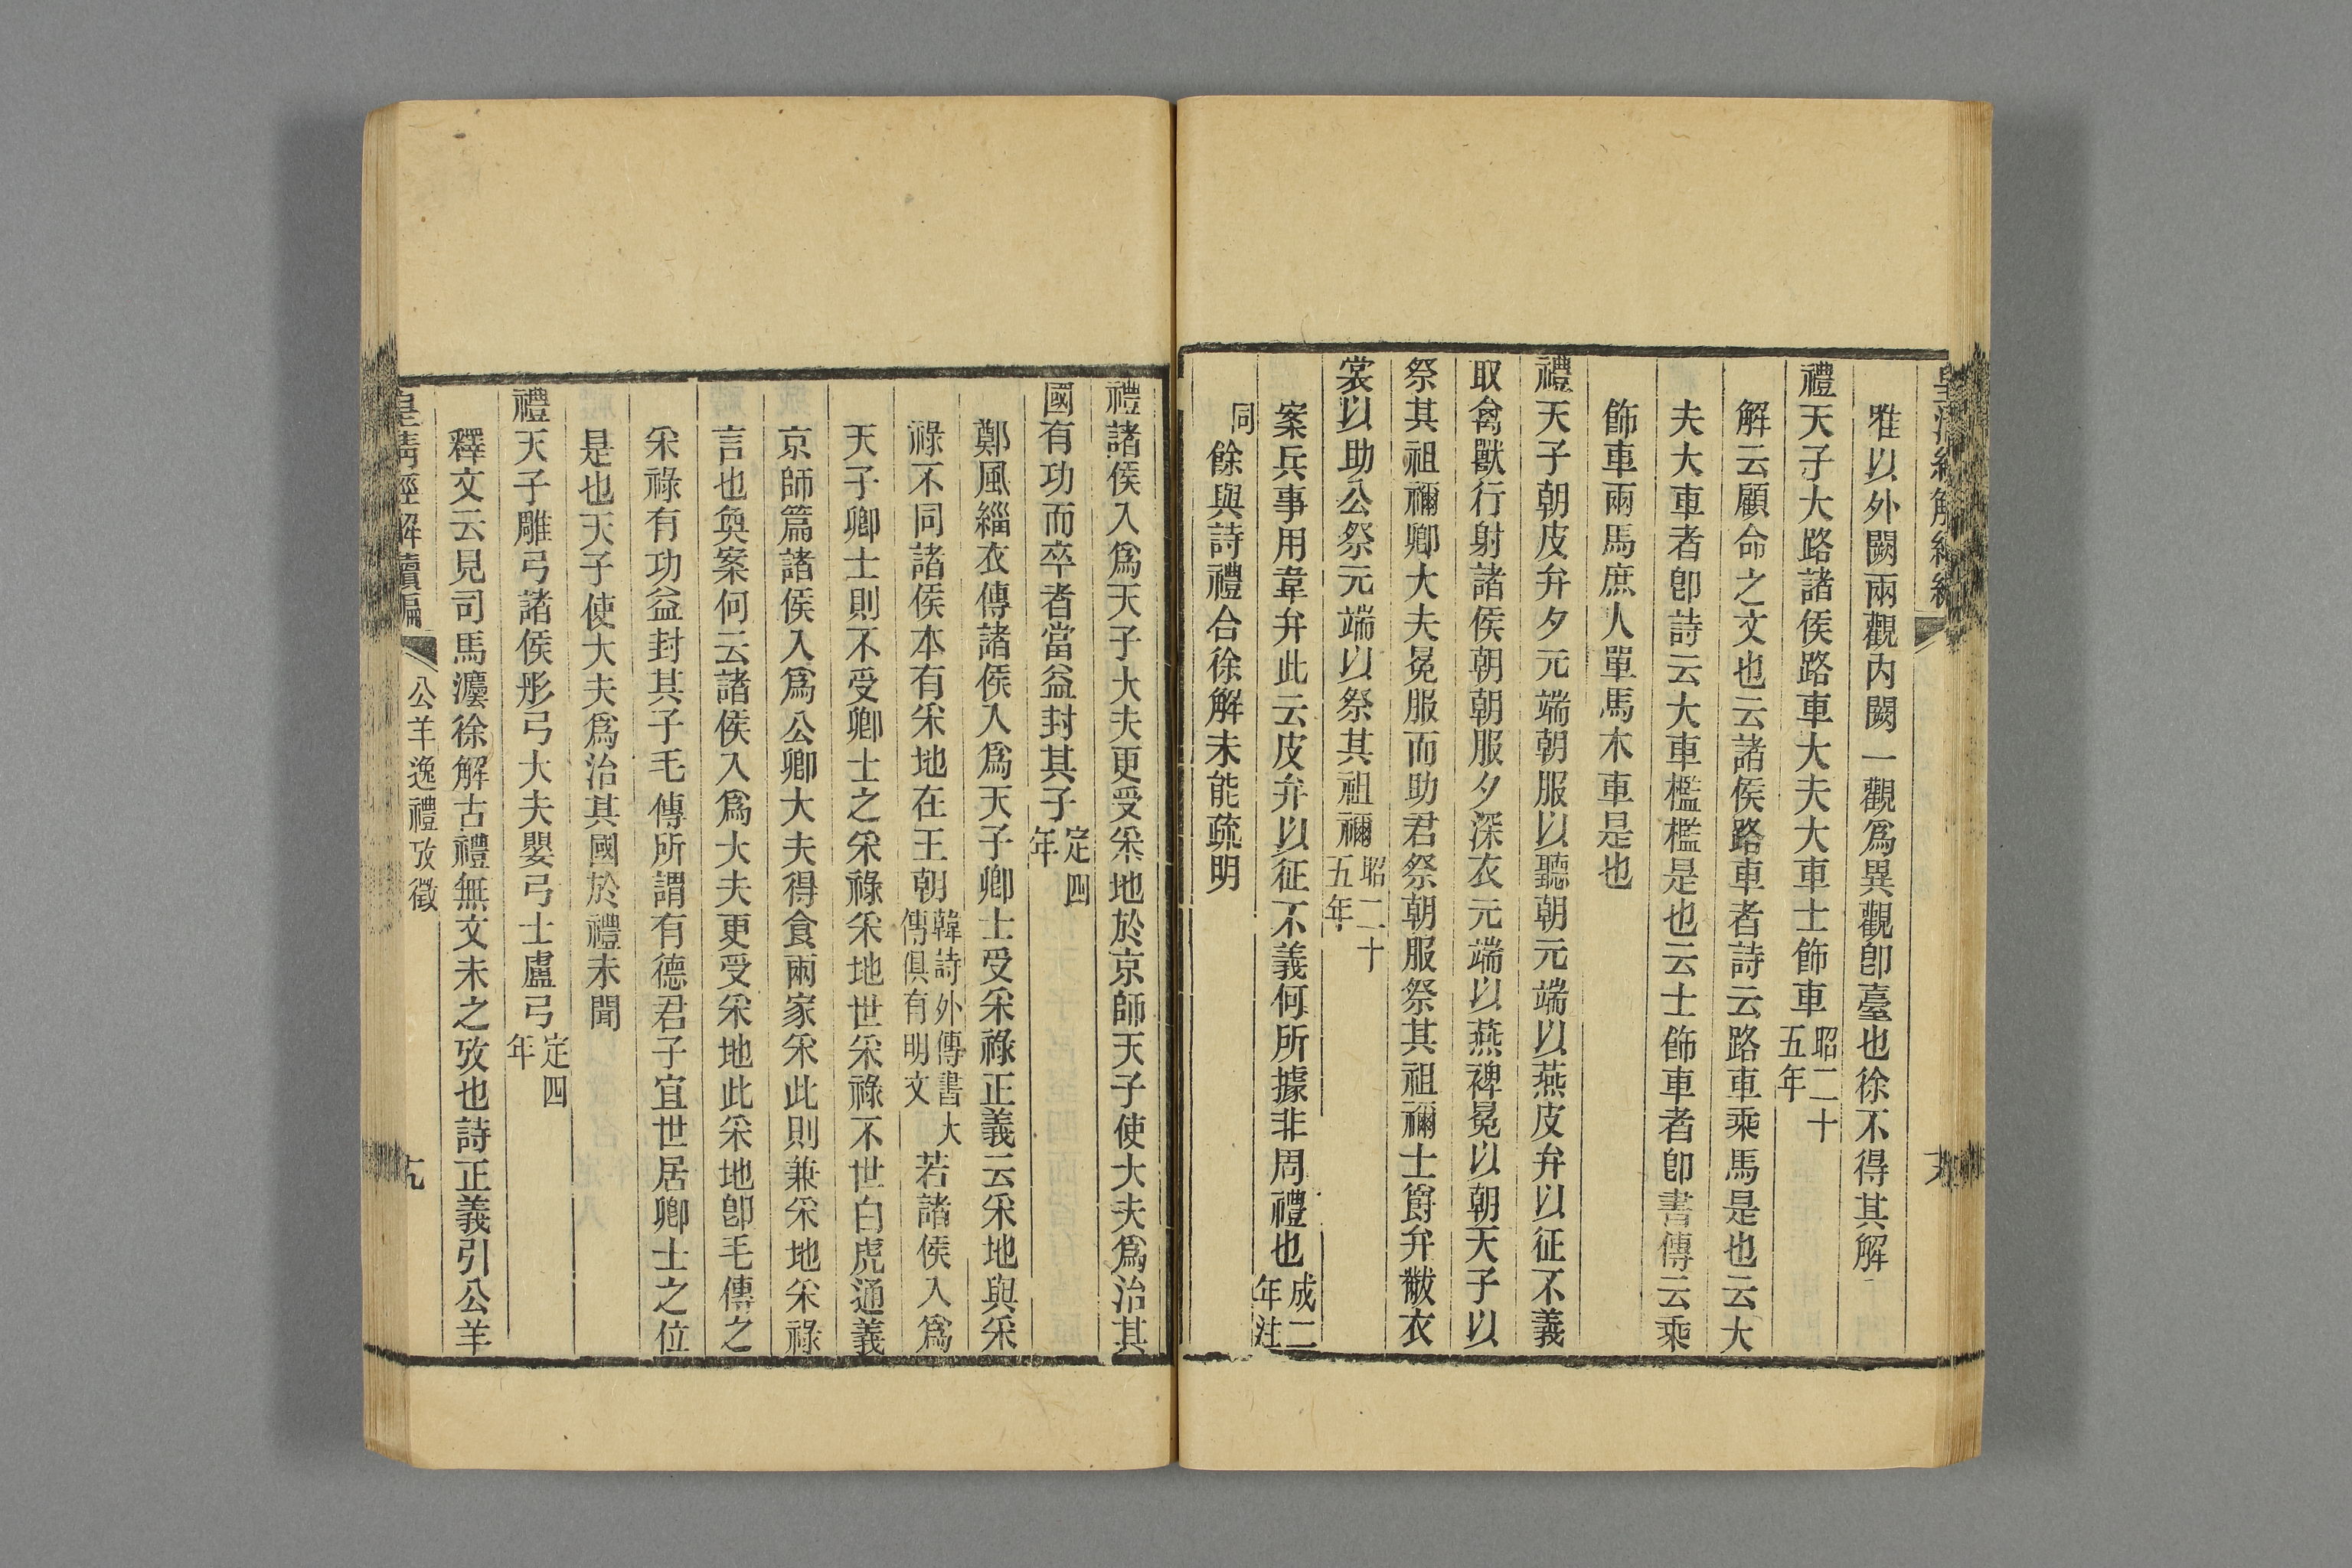 皇清經解續編
雅以外闕兩觀內闕一觀爲異觀卽臺也徐不得其解
禮天子大路諸侯路車大夫大車士飾車昭二十五年
解云顧命之文也云諸侯路車者詩云路車乘馬是也云大
夫大車者卽詩云大車檻檻是也云士飾車者卽書傳云乘
飾車兩馬庶人單馬木車是也
禮天子朝皮弁夕元端朝服以聽朝元端以燕皮弁以征不義
取禽獸行射諸侯朝朝服夕深衣元端以燕裨冕以朝天子以
祭其祖禰卿大夫冕服而助君祭朝服祭其祖禰士爵弁黻衣
裳以助公祭元端以祭其祖禰昭二十五年
案兵事用韋弁此云皮弁以征不義何所據非周禮也成二年注
同餘與詩禮合徐解未能疏明
禮諸侯入爲天子大夫更受采地於京師天子使大夫爲治其
國有功而卒者當益封其子定四年
鄭風緇衣傳諸侯入爲天子卿士受采祿正義云采地與采
祿不同諸侯本有采地在王朝韓詩外傳書大傳俱有明文若諸侯入爲
天子卿士則不受卿士之采祿采地世采祿不世白虎通義
京師篇諸侯入爲公卿大夫得食兩家采此則兼采地采祿
言也奐案何云諸侯入爲大夫更受采地此采地卽毛傳之
采祿有功益封其子毛傳所謂有德君子宜世居卿士之位
是也天子使大夫爲治其國於禮未聞
禮天子雕弓諸侯彤弓大夫嬰弓士盧弓定四年
釋文云見司馬灋徐解古禮無文未之攷也詩正義引公羊
皇清經解續編
公羊逸禮攷徵